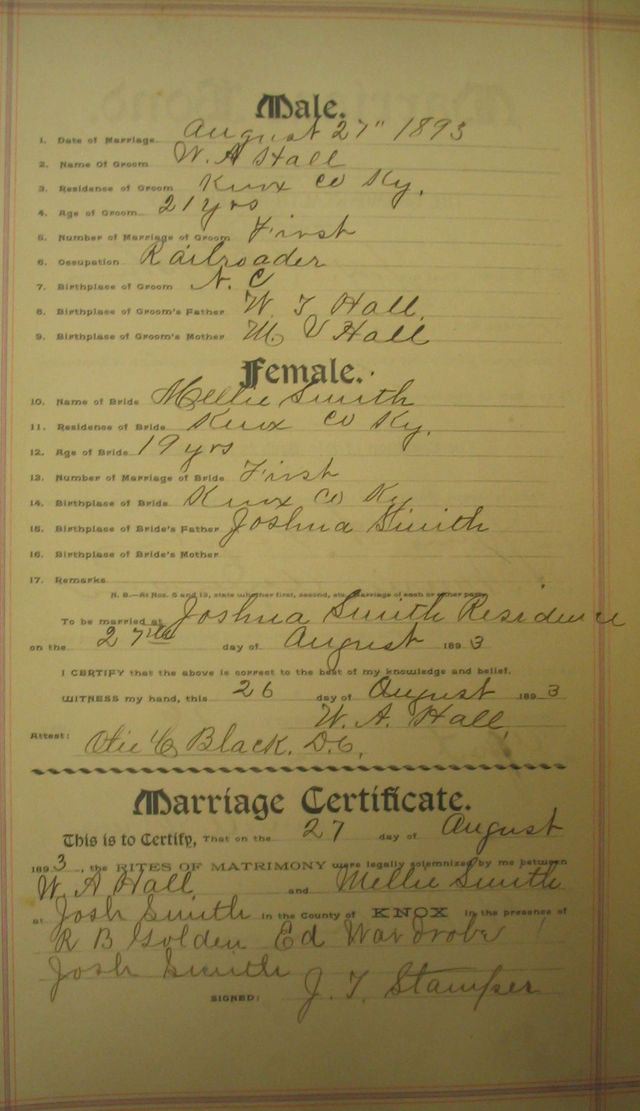 Male.
1. Date of Marriage August 27" 1893
2. Name Of Groom W. A Hall
3. Residence of Groom Knox Co Ky.
4. Age of Groom 21 yrs
5. Number of Marriage of Groom First
6. Occupation Railroader
7. Birthplace of Groom N. C
8. Birthplace of Groom's Father W. T Hall.
9. Birthplace of Groom's Mother M V Hall
Female.
10. Name of Bride Mellie Smith
11. Residence of Bride Knox Co Ky.
12. Age of Bride 19 yrs
13. Number of Marriage of Bride First
14. Birthplace of Bride Knox Co Ky
15. Birthplace of Bride's Father Joshua Smith
16. Birthplace of Bride's Mother
17. Remarks
N. B.—At Nos. 5 and 13, state whether first, second, etc., marriage of each or either party.
To be married at Joshua Smith Residence
on the 27th day of August 1893
I CERTIFY that the above is correct to the best of my knowledge and belief.
WITNESS my hand, this 26 day of August 1893
W. A. Hall
Attest: Black. D.C.
Marriage Certificate.
This is to Certify, That on the 27 day of August
1893, the RITES OF MATRIMONY were legally solemnized by me between
W. A Hall and Mellie Smith
at Josh Smith in the County of KNOX in the presence of
R B Golden Ed Wardrobe
Josh Smith
SIGNED: J. T. Stamper